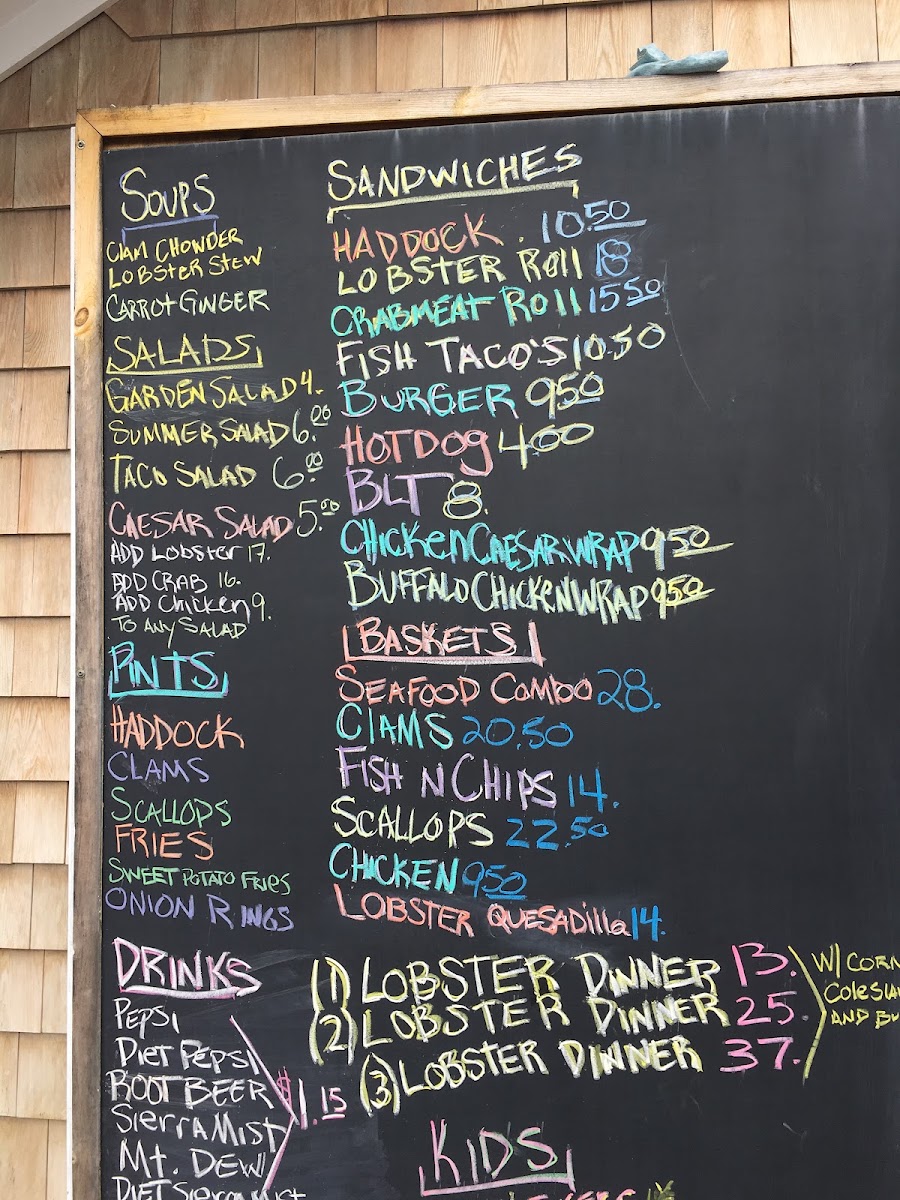 SOUPS
CLAM CHOWDER
LOBSTER STEW
CARROT GINGER
SALADS
GARDEN SALAD 4.
SUMMER SALAD 6.00
TACO SALAD 6.00
CAESAR SALAD 5.00
ADD LOBSTER 17.
ADD CRAB 16.
ADD CHICKEN 9.
TO ANY SALAD
PINTS
HADDOCK
CLAMS
SCALLOPS
FRIES
SWEET POTATO FRIES
ONION RINGS
DRINKS
PEPSI
DIET PEPSI
ROOT BEER
SIERRA MIST
MT. DEW
DIET SIERRA MIST
$1.15
SANDWICHES
HADDOCK . 10.50
LOBSTER ROLL 18
CRABMEAT ROLL 15.50
FISH TACO'S 10.50
BURGER 9.50
HOTDOG 4.00
BLT 8.
CHICKEN CAESAR WRAP 9.50
BUFFALO CHICKEN WRAP 9.50
BASKETS
SEAFOOD COMBO 28.
CLAMS 20.50
FISH N CHIPS 14.
SCALLOPS 22.50
CHICKEN 9.50
LOBSTER QUESADILLA 14.
(1) LOBSTER DINNER 13.
(2) LOBSTER DINNER 25.
(3) LOBSTER DINNER 37.
W/ CORN
COLESLA
AND BU
KIDS